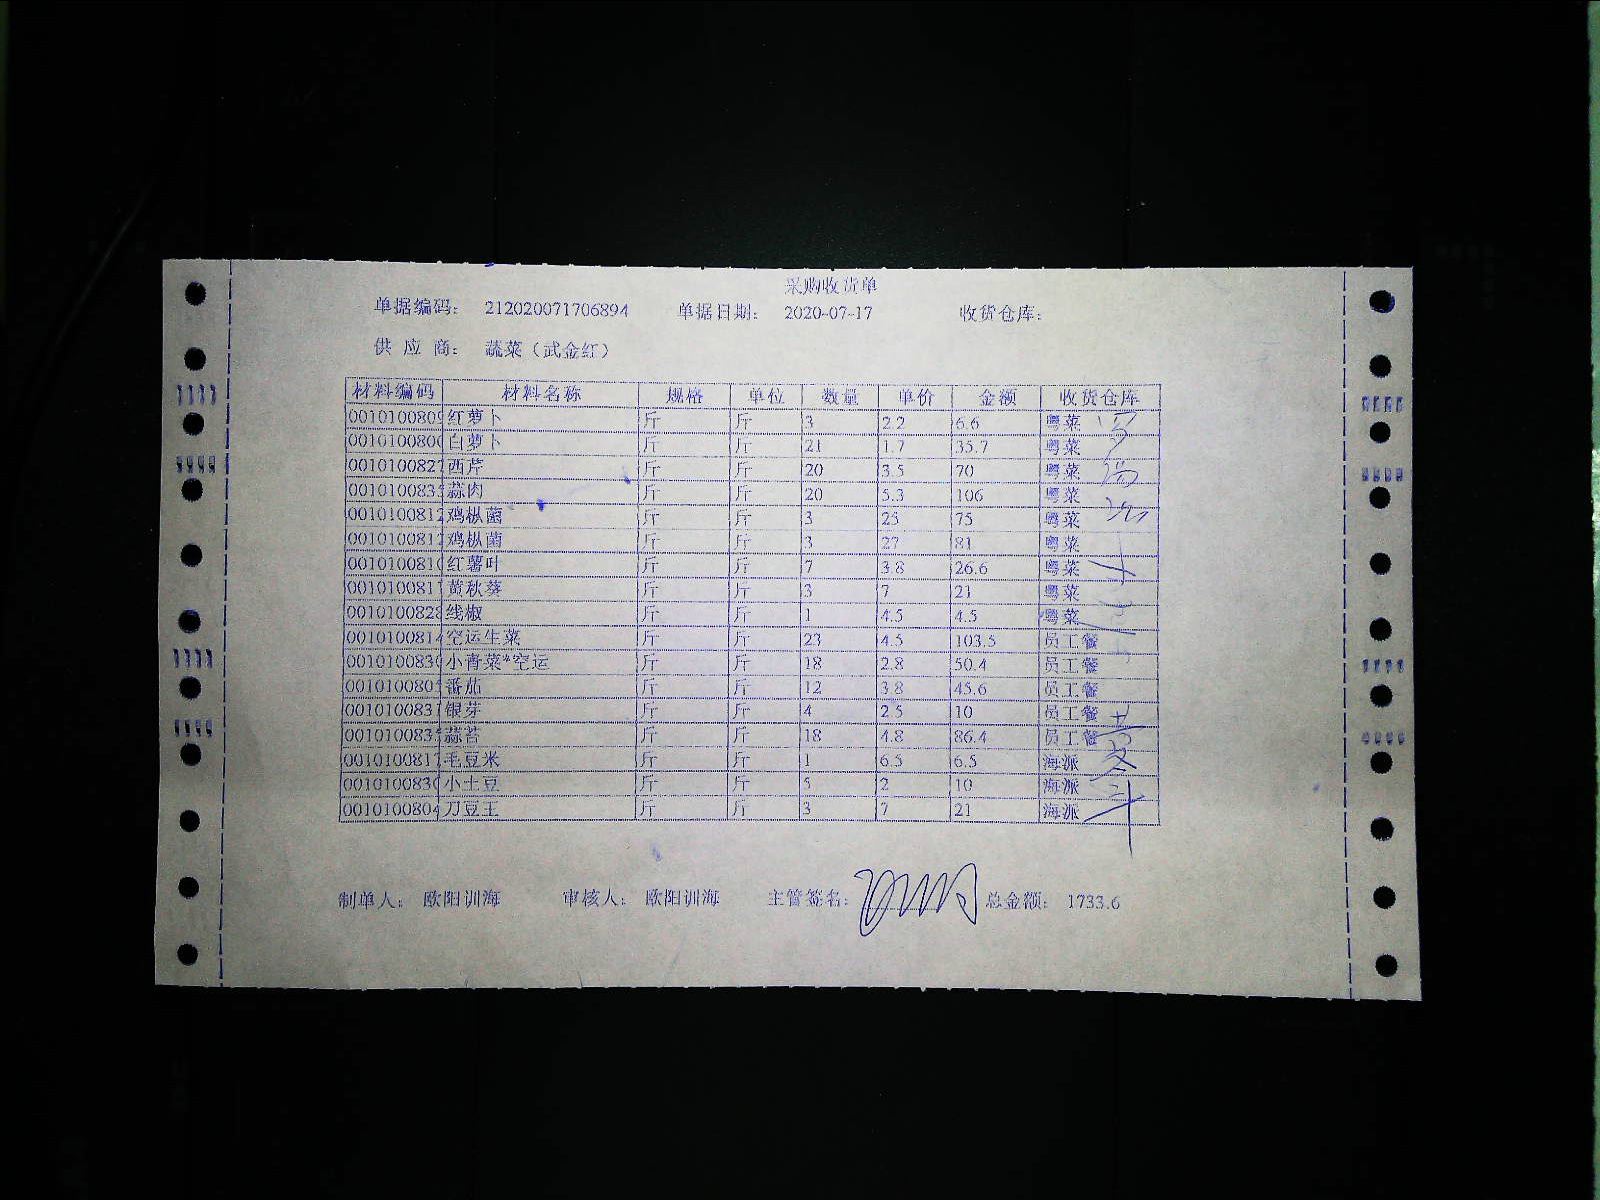 采购收货单
单据编码: 212020071706894 单据日期: 2020-07-17 收货仓库:
供 应 商: 蔬菜（武金红）
材料编码 材料名称 规格 单位 数量 单价 金额 收货仓库
0010100809 红萝卜 斤 斤 3 2.2 6.6 粤菜
001010080 白萝卜 斤 斤 21 1.7 35.7 粤菜
001010082 西芹 斤 斤 20 3.5 70 粤菜
001010083 蒜肉 斤 斤 20 5.3 106 粤菜
001010081 鸡枞菌 斤 斤 3 25 75 粤菜
001010081 鸡枞菌 斤 斤 3 27 81 粤菜
001010081 红薯叶 斤 斤 7 3.8 26.6 粤菜
001010081 黄秋葵 斤 斤 3 7 21 粤菜
0010100828 线椒 斤 斤 1 4.5 4.5 粤菜
001010081 空运生菜 斤 斤 23 4.5 103.5 员工餐
001010083 小青菜*空运 斤 斤 18 2.8 50.4 员工餐
001010080 番茄 斤 斤 12 3.8 45.6 员工餐
001010083 银芽 斤 斤 4 2.5 10 员工餐
001010083 蒜苔 斤 斤 18 4.8 86.4 员工餐
001010081 毛豆米 斤 斤 1 6.5 6.5 海派
001010083 小土豆 斤 斤 5 2 10 海派
001010080 刀豆王 斤 斤 3 7 21 海派
制单人: 欧阳训海 审核人: 欧阳训海 主管签名: 总金额: 1733.6